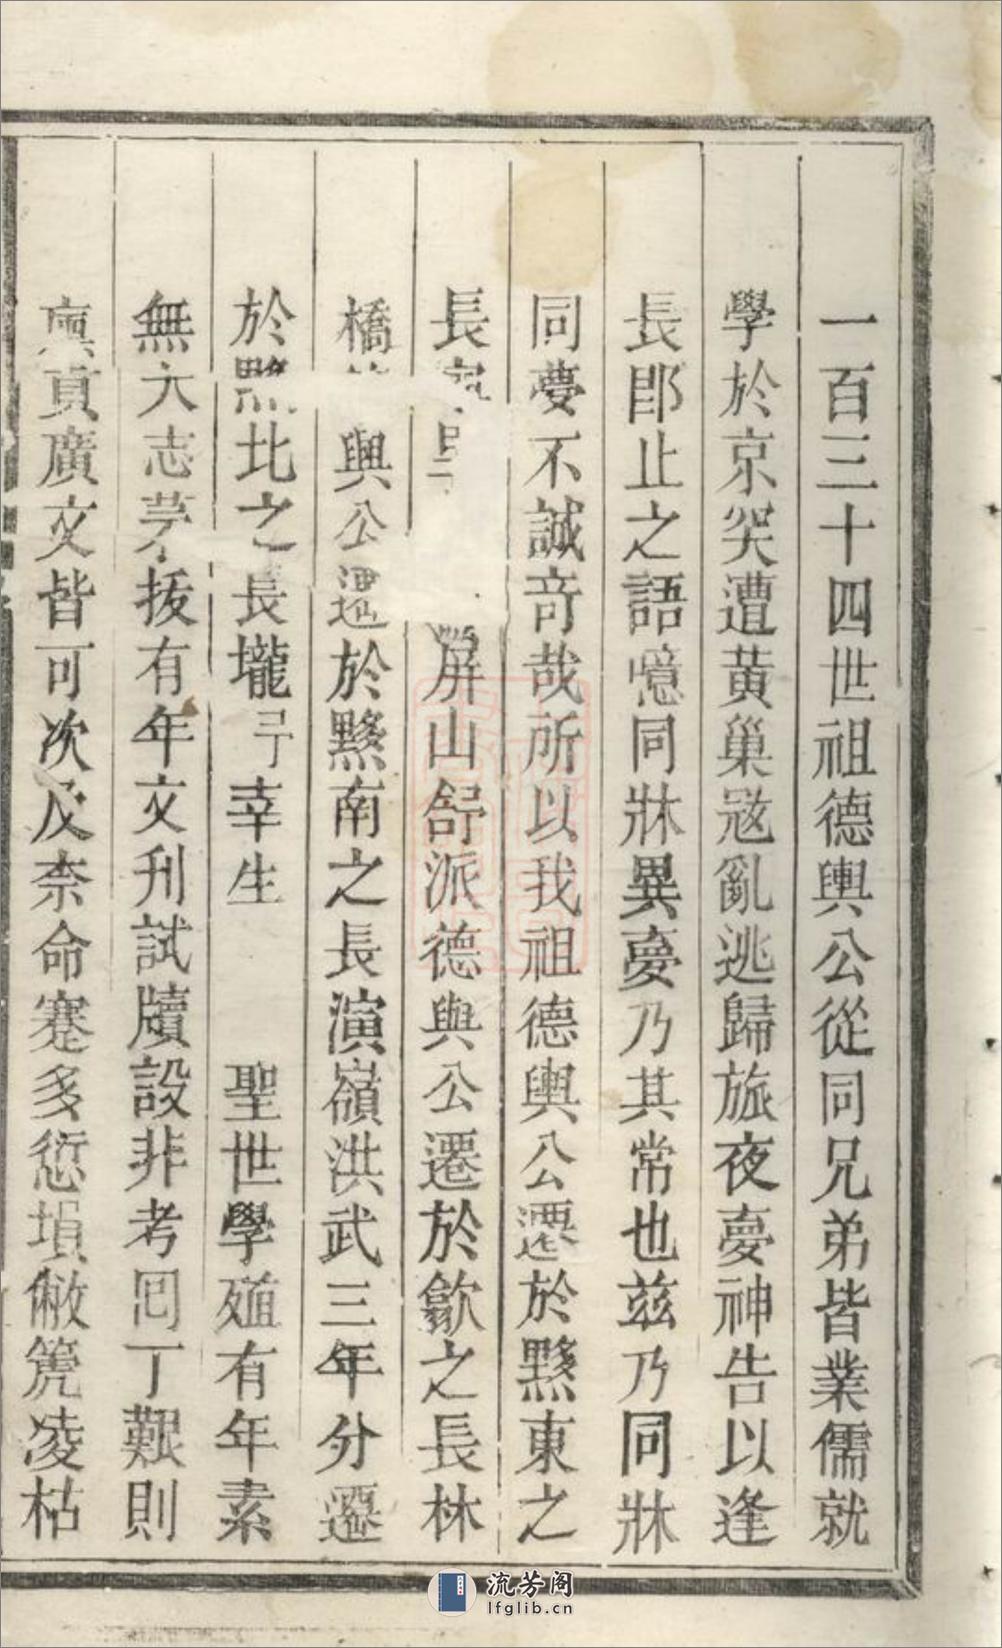 一百三十四世祖德輿公從同兄弟皆業儒就
學於京突遭黄巢寇亂逃歸旅夜夢神告以逢
長郎止之語憶同牀異夢乃其常也茲乃同牀
同夢不誠竒哉所以我祖德輿公遷於黟東之
長 屏山舒派德輿公遷於歙之長林
橋 輿公遷於黟南之長演嶺洪武三年分遷
於黟北之長壠弓幸生 聖世學殖有年素
無大志茅拔有年文刋試牘設非考囘丁艱則
廪貢廣文皆可次及柰命蹇多愆塤僘箎凌枯
流芳阁
lfglib.cn